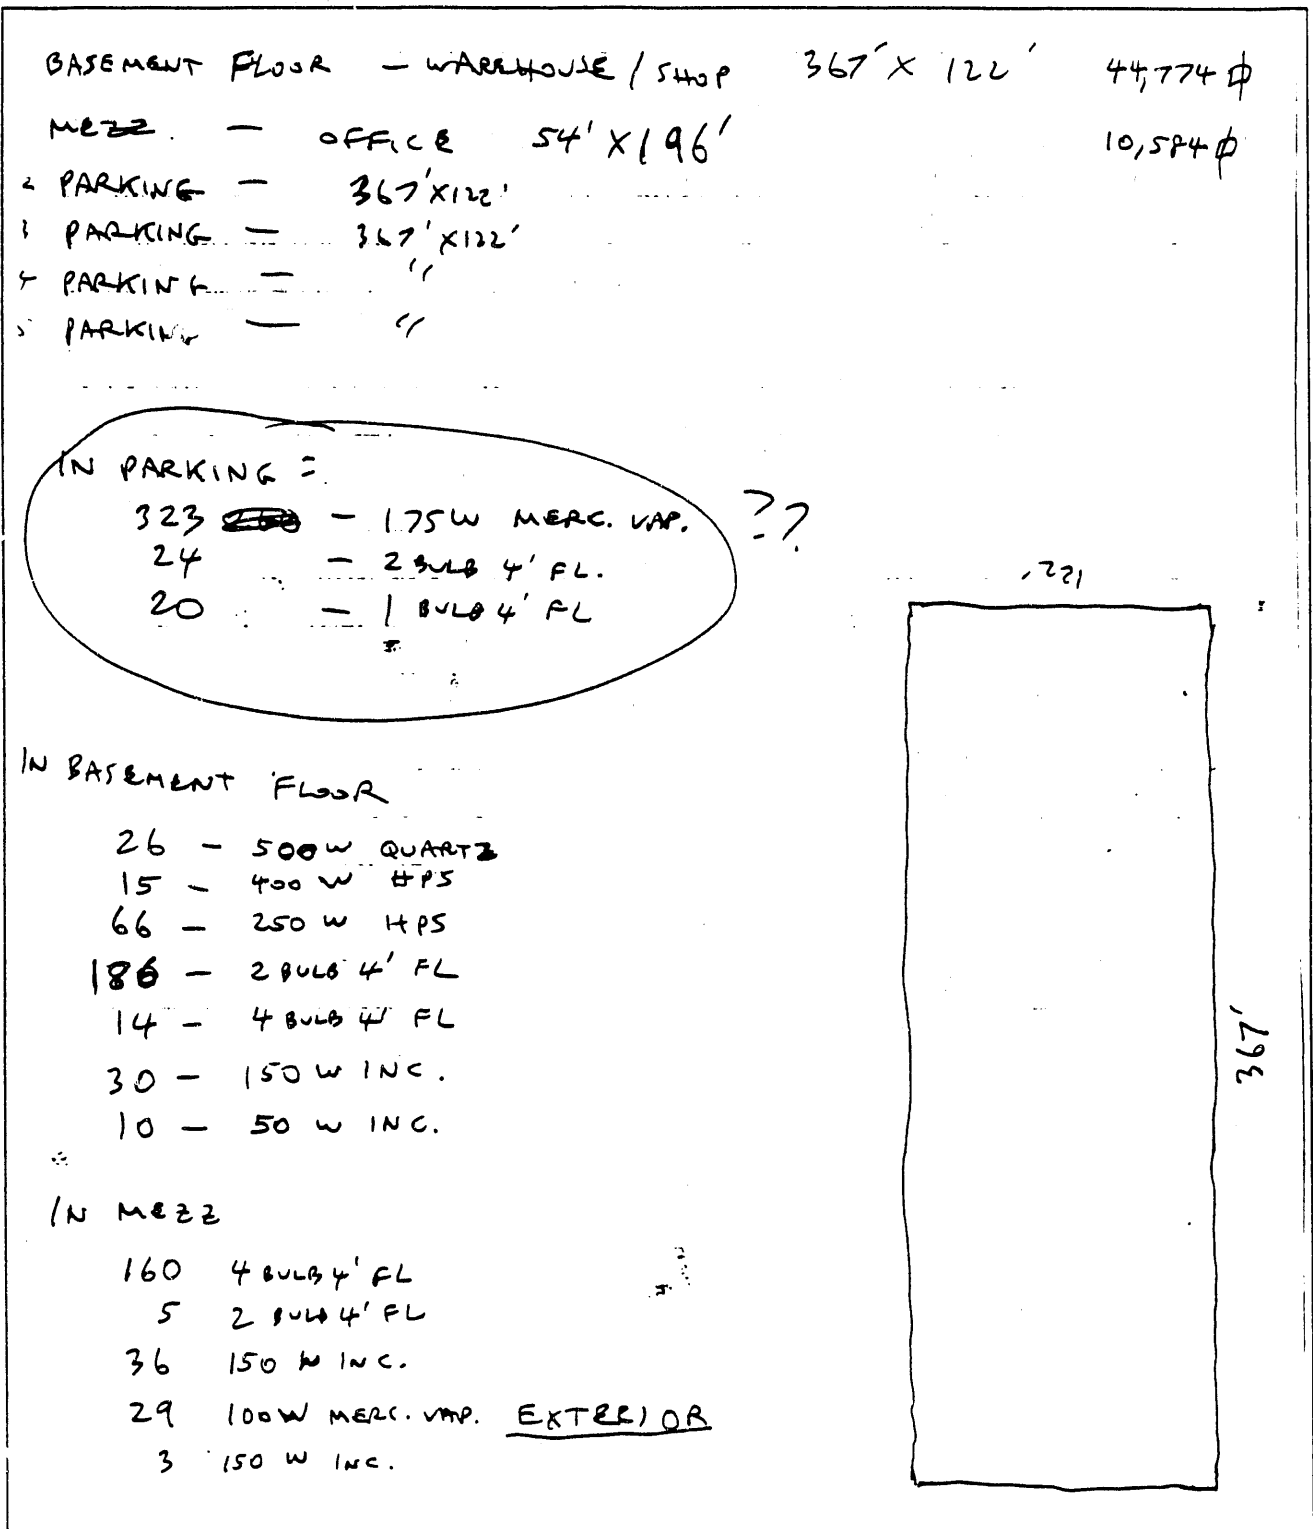 BASEMENT FLOOR — WAREHOUSE / SHOP 367' X 122' 44,774 ф
MEZZ. — OFFICE 54' X 196' 10,584 ф
2 PARKING — 367' X 122'
3 PARKING — 367' X 122'
4 PARKING — "
5 PARKING — "
IN PARKING =
323 - 175W MERC. VAP. ??
24 - 2 BULB 4' FL.
20 - 1 BULB 4' FL
122'
367'
IN BASEMENT FLOOR
26 - 500W QUARTZ
15 - 400 W HPS
66 - 250 W HPS
186 - 2 BULB 4' FL
14 - 4 BULB 4' FL
30 - 150 W INC.
10 - 50 W INC.
IN MEZZ
160 4 BULB 4' FL
5 2 BULB 4' FL
36 150 W INC.
29 100W MERC. VAP. EXTERIOR
3 150 W INC.